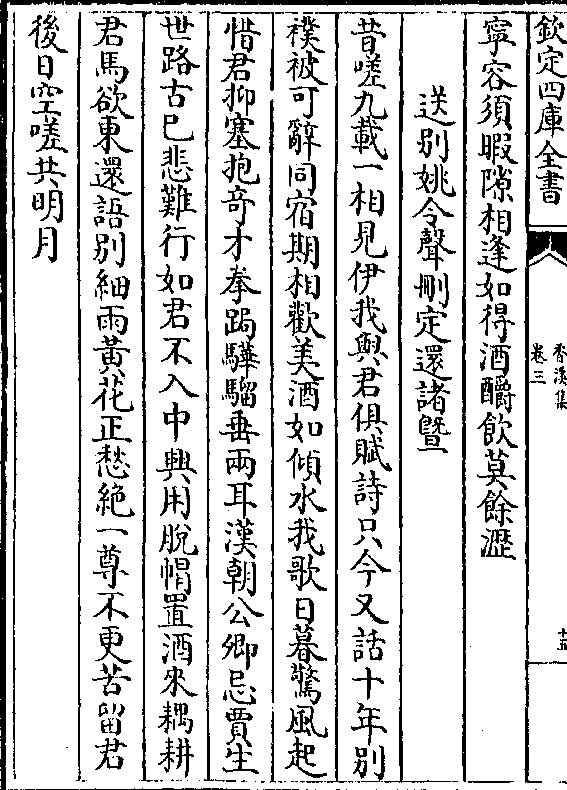 欽定四庫全書
香溪集
卷三
寧容須暇隙相逢如得酒釂飲莫餘瀝
送别姚令聲刪定還諸暨
昔嗟九載一相見伊我與君俱賦詩只今又話十年别
襆被可辭同宿期相歡美酒如傾水我歌日暮驚風起
惜君抑塞抱奇才拳跼驊騮垂兩耳漢朝公卿忌賈生
世路古已悲難行如君不入中興用脫帽置酒來耦耕
君馬欲東還語别細雨黄花正愁絶一尊不更苦留君
後日空嗟共明月